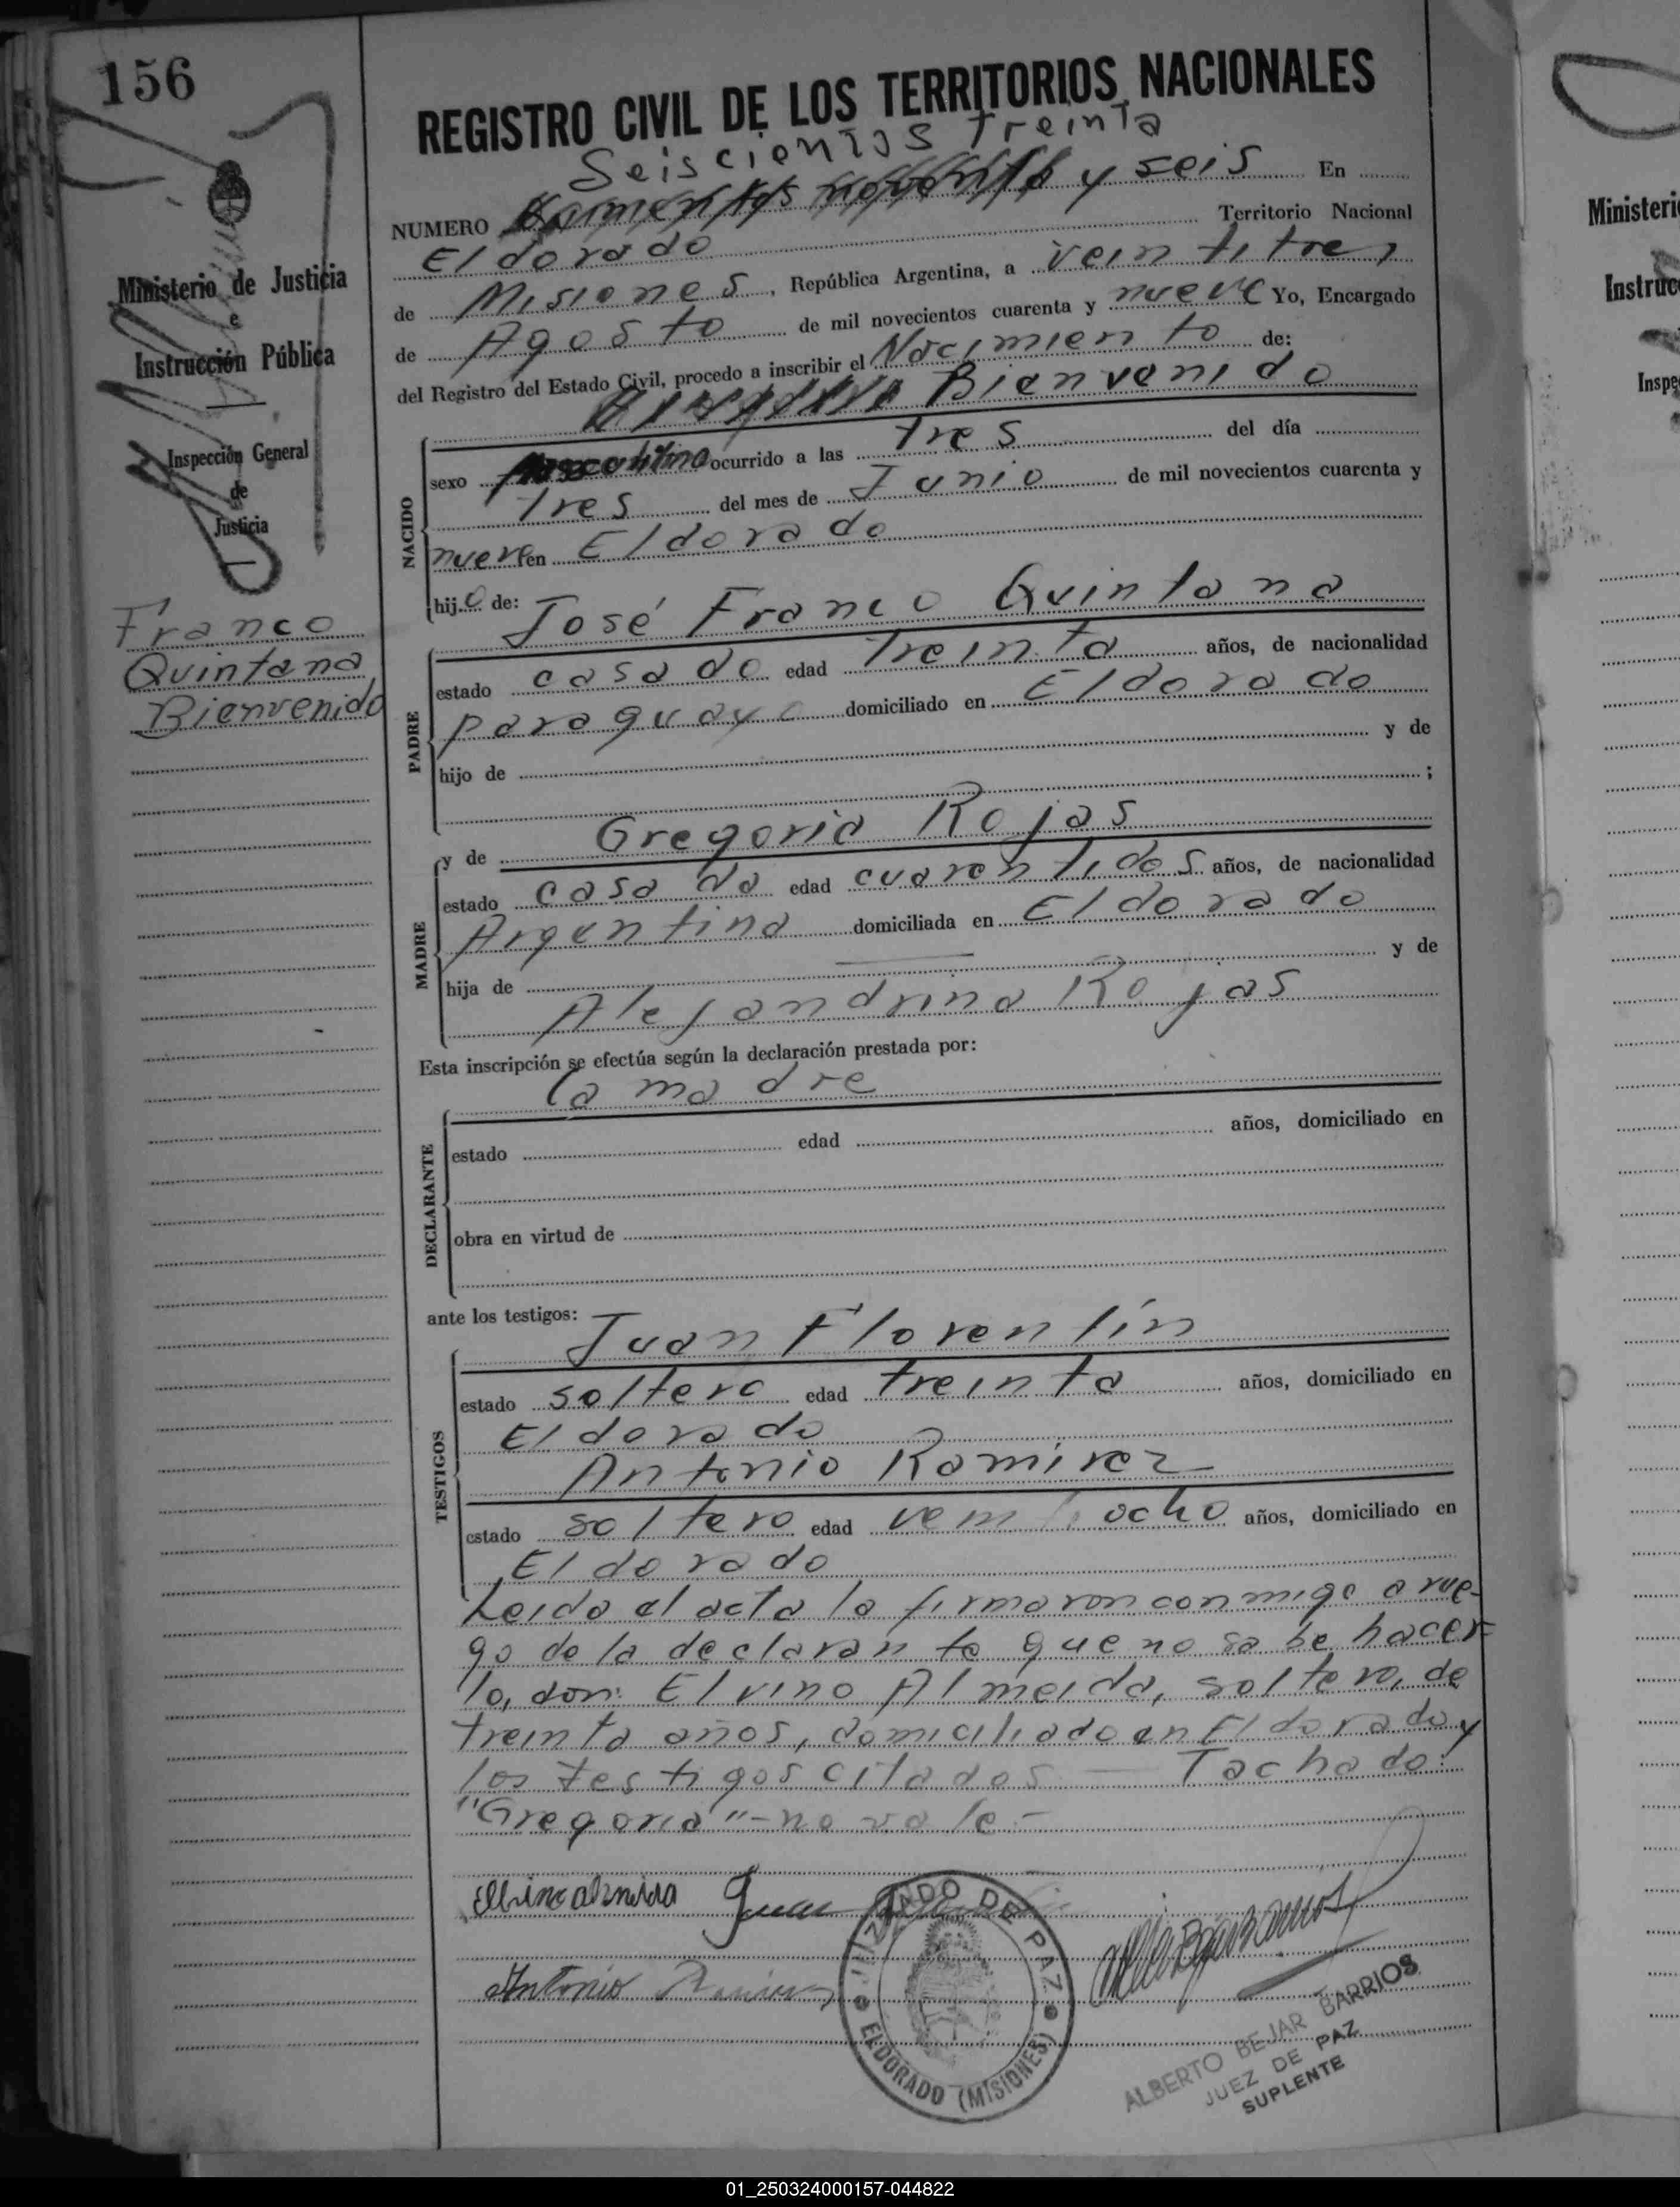 156
REGISTRO CIVIL DE LOS TERRITORIOS NACIONALES
Seiscientos treinta
NUMERO y seis En
Eldorado Territorio Nacional
de Misiones, República Argentina, a veintitres
de Agosto de mil novecientos cuarenta y nueve Yo, Encargado
del Registro del Estado Civil, procedo a inscribir el Nacimiento de:
Bienvenido
NACIDO
sexo masculino ocurrido a las tres del día
tres del mes de Junio de mil novecientos cuarenta y
nueve en Eldorado
hijo de:
José Franco Quintana
PADRE
estado casado edad treinta años, de nacionalidad
paraguayo domiciliado en Eldorado
hijo de y de
;
y de Gregoria Rojas
MADRE
estado casada edad cuarentidos años, de nacionalidad
Argentina domiciliada en Eldorado
hija de y de
Alejandrina Rojas
Esta inscripción se efectúa según la declaración prestada por:
La madre
DECLARANTE
estado edad años, domiciliado en
obra en virtud de
ante los testigos:
Juan Florentín
TESTIGOS
estado soltero edad treinta años, domiciliado en
Eldorado
Antonio Ramírez
estado soltero edad veintiocho años, domiciliado en
Eldorado
Leida el acta la firmaron conmigo a rue-
go de la declarante que no sabe hacer-
lo, don: Elvino Almeida, soltero, de
treinta años, domiciliado en Eldorado y
los testigos citados — Tachado:
"Gregoria" - no vale -
Elvino Almeida Juan
Antonio Ramirez
JUZGADO DE PAZ
ELDORADO (MISIONES)
ALBERTO BEJAR BARRIOS
JUEZ DE PAZ
SUPLENTE
Ministerio de Justicia
e
Instrucción Pública
Inspección General
de
Justicia
Franco
Quintana
Bienvenido
Ministeri
Instruc
Inspe
01_250324000157-044822